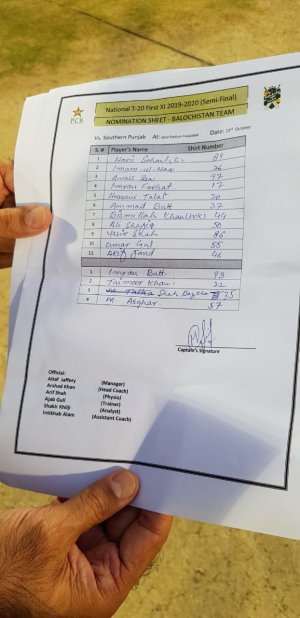 PCB
National T-20 First XI 2019-2020 (Semi-Final)
NOMINATION SHEET - BALOCHISTAN TEAM
Vs. Southern Punjab At: Iqbal Stadium Faisalabad Date: 23rd October
S. # Player's Name Shirt Number
1 Haris Sohail, C. 89
2 Imam ul Haq 26
3 Awais Zia 97
4 Imran Farhat 17
5 Hussain Talat 20
6 Ammad Butt 37
7 Bismillah Khan (WK) 44
8 Ali Shafiq 50
9 Yasir Shah 86
10 Umar Gul 55
11 Akif Javed 46
1 Imran Butt 93
2 Taimoor Khan 22
3 Talha 35
4 M. Asghar 57
Captain's Signature
Official:
Altaf Jaffery (Manager)
Arshad Khan (Head Coach)
Arif Shah (Physio)
Ajab Gull (Trainer)
Shakir Khilji (Analyst)
Intikhab Alam (Assistant Coach)